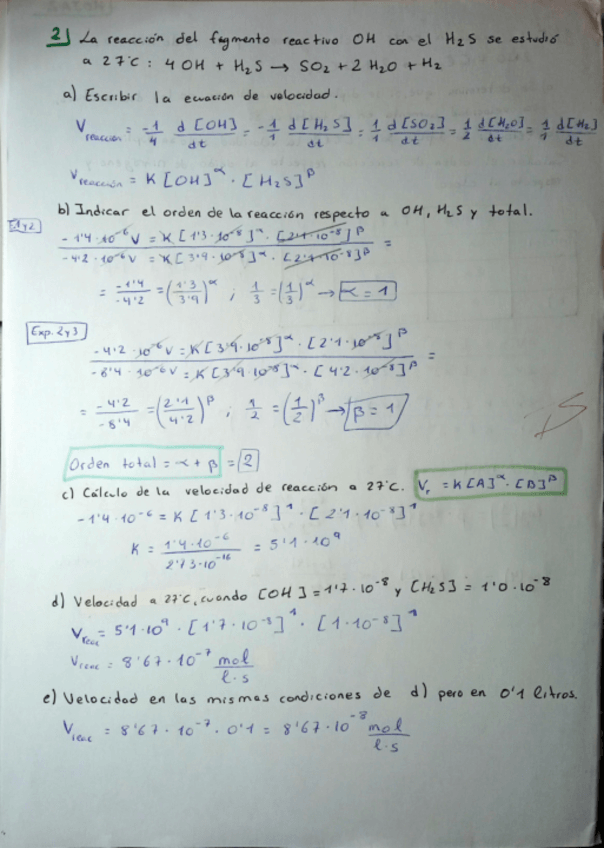 2) La reacción del fagmento reactivo OH con el H₂S se estudió
a 27°C : 4 OH + H₂S → SO₂ + 2 H₂O + H₂
a) Escribir la ecuación de velocidad.
V reacción = -1/4 d[OH]/dt = -1/1 d[H₂S]/dt = 1/1 d[SO₂]/dt = 1/2 d[H₂O]/dt = 1/1 d[H₂]/dt
V reacción = K [OH]^α · [H₂S]^β
b) Indicar el orden de la reacción respecto a OH, H₂S y total.
1y2
-1'4·10⁻⁶ V = K [1'3·10⁻⁸]^α · [2'1·10⁻⁸]^β
-4'2·10⁻⁶ V = K [3'9·10⁻⁸]^α · [2'1·10⁻⁸]^β =
= -1'4/-4'2 = (1'3/3'9)^α ; 1/3 = (1/3)^α → α = 1
Exp. 2y3
-4'2·10⁻⁶ V = K [3'9·10⁻⁸]^α · [2'1·10⁻⁸]^β
-8'4·10⁻⁶ V = K [3'9·10⁻⁸]^α · [4'2·10⁻⁸]^β =
= -4'2/-8'4 = (2'1/4'2)^β ; 1/2 = (1/2)^β → β = 1
Orden total = α + β = 2
c) Cálculo de la velocidad de reacción a 27°C. Vr = K[A]^α · [B]^β
-1'4·10⁻⁶ = K [1'3·10⁻⁸]¹ · [2'1·10⁻⁸]¹
K = 1'4·10⁻⁶/2'73·10⁻¹⁶ = 5'1·10⁹
d) Velocidad a 27°C, cuando [OH] = 1'7·10⁻⁸ y [H₂S] = 1'0·10⁻⁸
V reac = 5'1·10⁹ · [1'7·10⁻⁸]¹ · [1·10⁻⁸]¹
V reac = 8'67·10⁻⁷ mol/l·s
e) Velocidad en las mismas condiciones de d) pero en 0'1 litros.
V reac = 8'67·10⁻⁷ · 0'1 = 8'67·10⁻⁸ mol/l·s